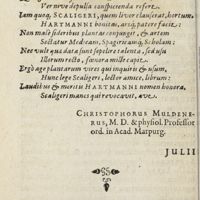 Ver nova depulsa conspicienda refert.
Iam quoq, SCALIGERI, quem liber clauserat, hortum,
HARTMANNI bonitas, arsq; patere facit.
Non male sedibus plantas conjungit, & artem
Sectatur Medicam, Spagericamq; Scholam:
Nec vult quæ data sunt sepelire talenta, sed usu
Illorum recto, fœnora mille capit.
Ergo age plantarum vires qui inquiris & usum,
Hunc lege Scaligeri, lector amice, librum:
Laudibus & meritis HARTMANNI nomen honora,
Scaligeri manes qui revocavit, ave.
CHRISTOPHORUS MULDENE-
RUS, M. D. & physiol. Professor
ord. in Acad. Marpurg.
JULII